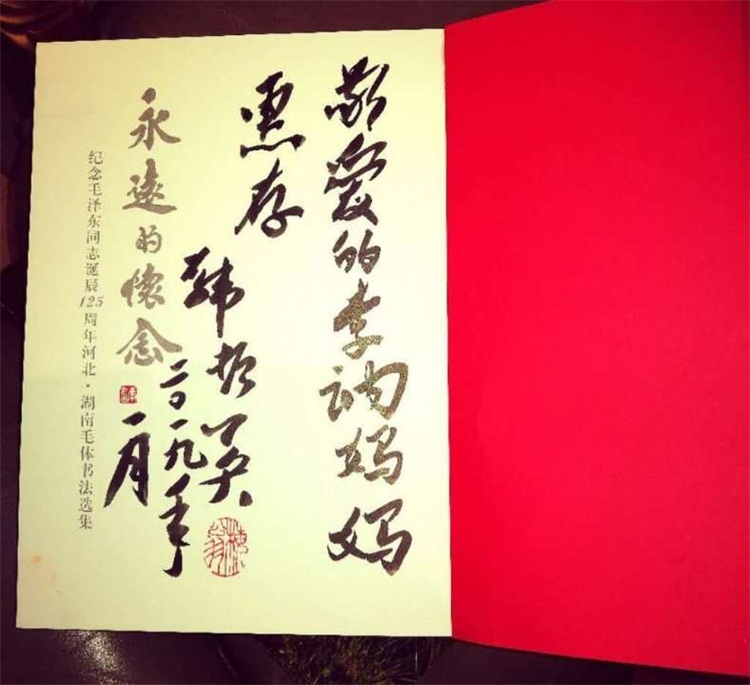 敬爱的李讷妈妈
惠存
韩哲英
二〇一九年
一月
永远的怀念
纪念毛泽东同志诞辰125周年河北·湖南毛体书法选集